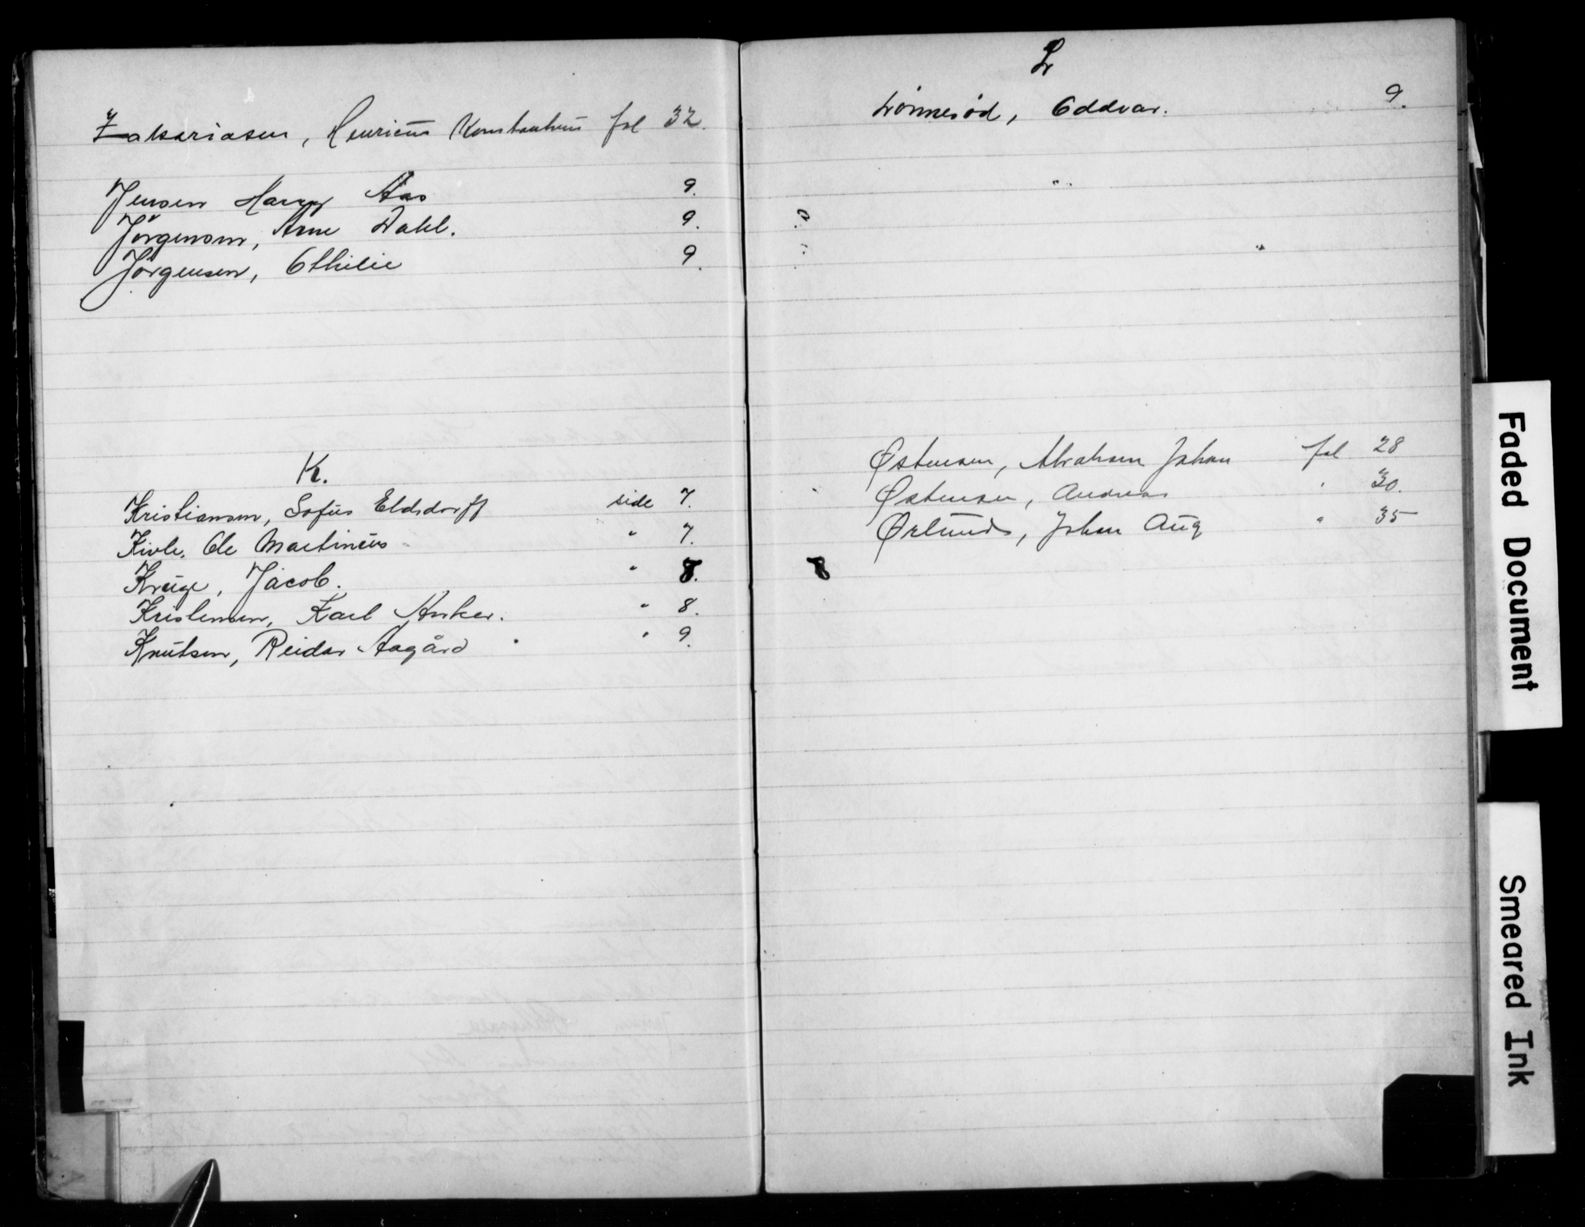 Zakariasen, Henricus Konstantinus fol 32.
Jensen Harry Aas 9.
Jörgensen, Arne Dahl. 9.
Jörgensen, Othilie 9.
K.
Kristiansen, Sofus Eldsdorff side 7.
Kivle, Ole Martinius " 7.
Kruge, Jacob. " 8.
Kristensen, Karl Anker. " 8.
Knutsen, Reidar Aagård " 9.
L
Lønnesød, Oddvar. 9.
Østensen, Abraham Johan fol 28
Østensen, Andreas " 30.
Ørlunds, Johan Aug " 35
8
Faded Document
Smeared Ink